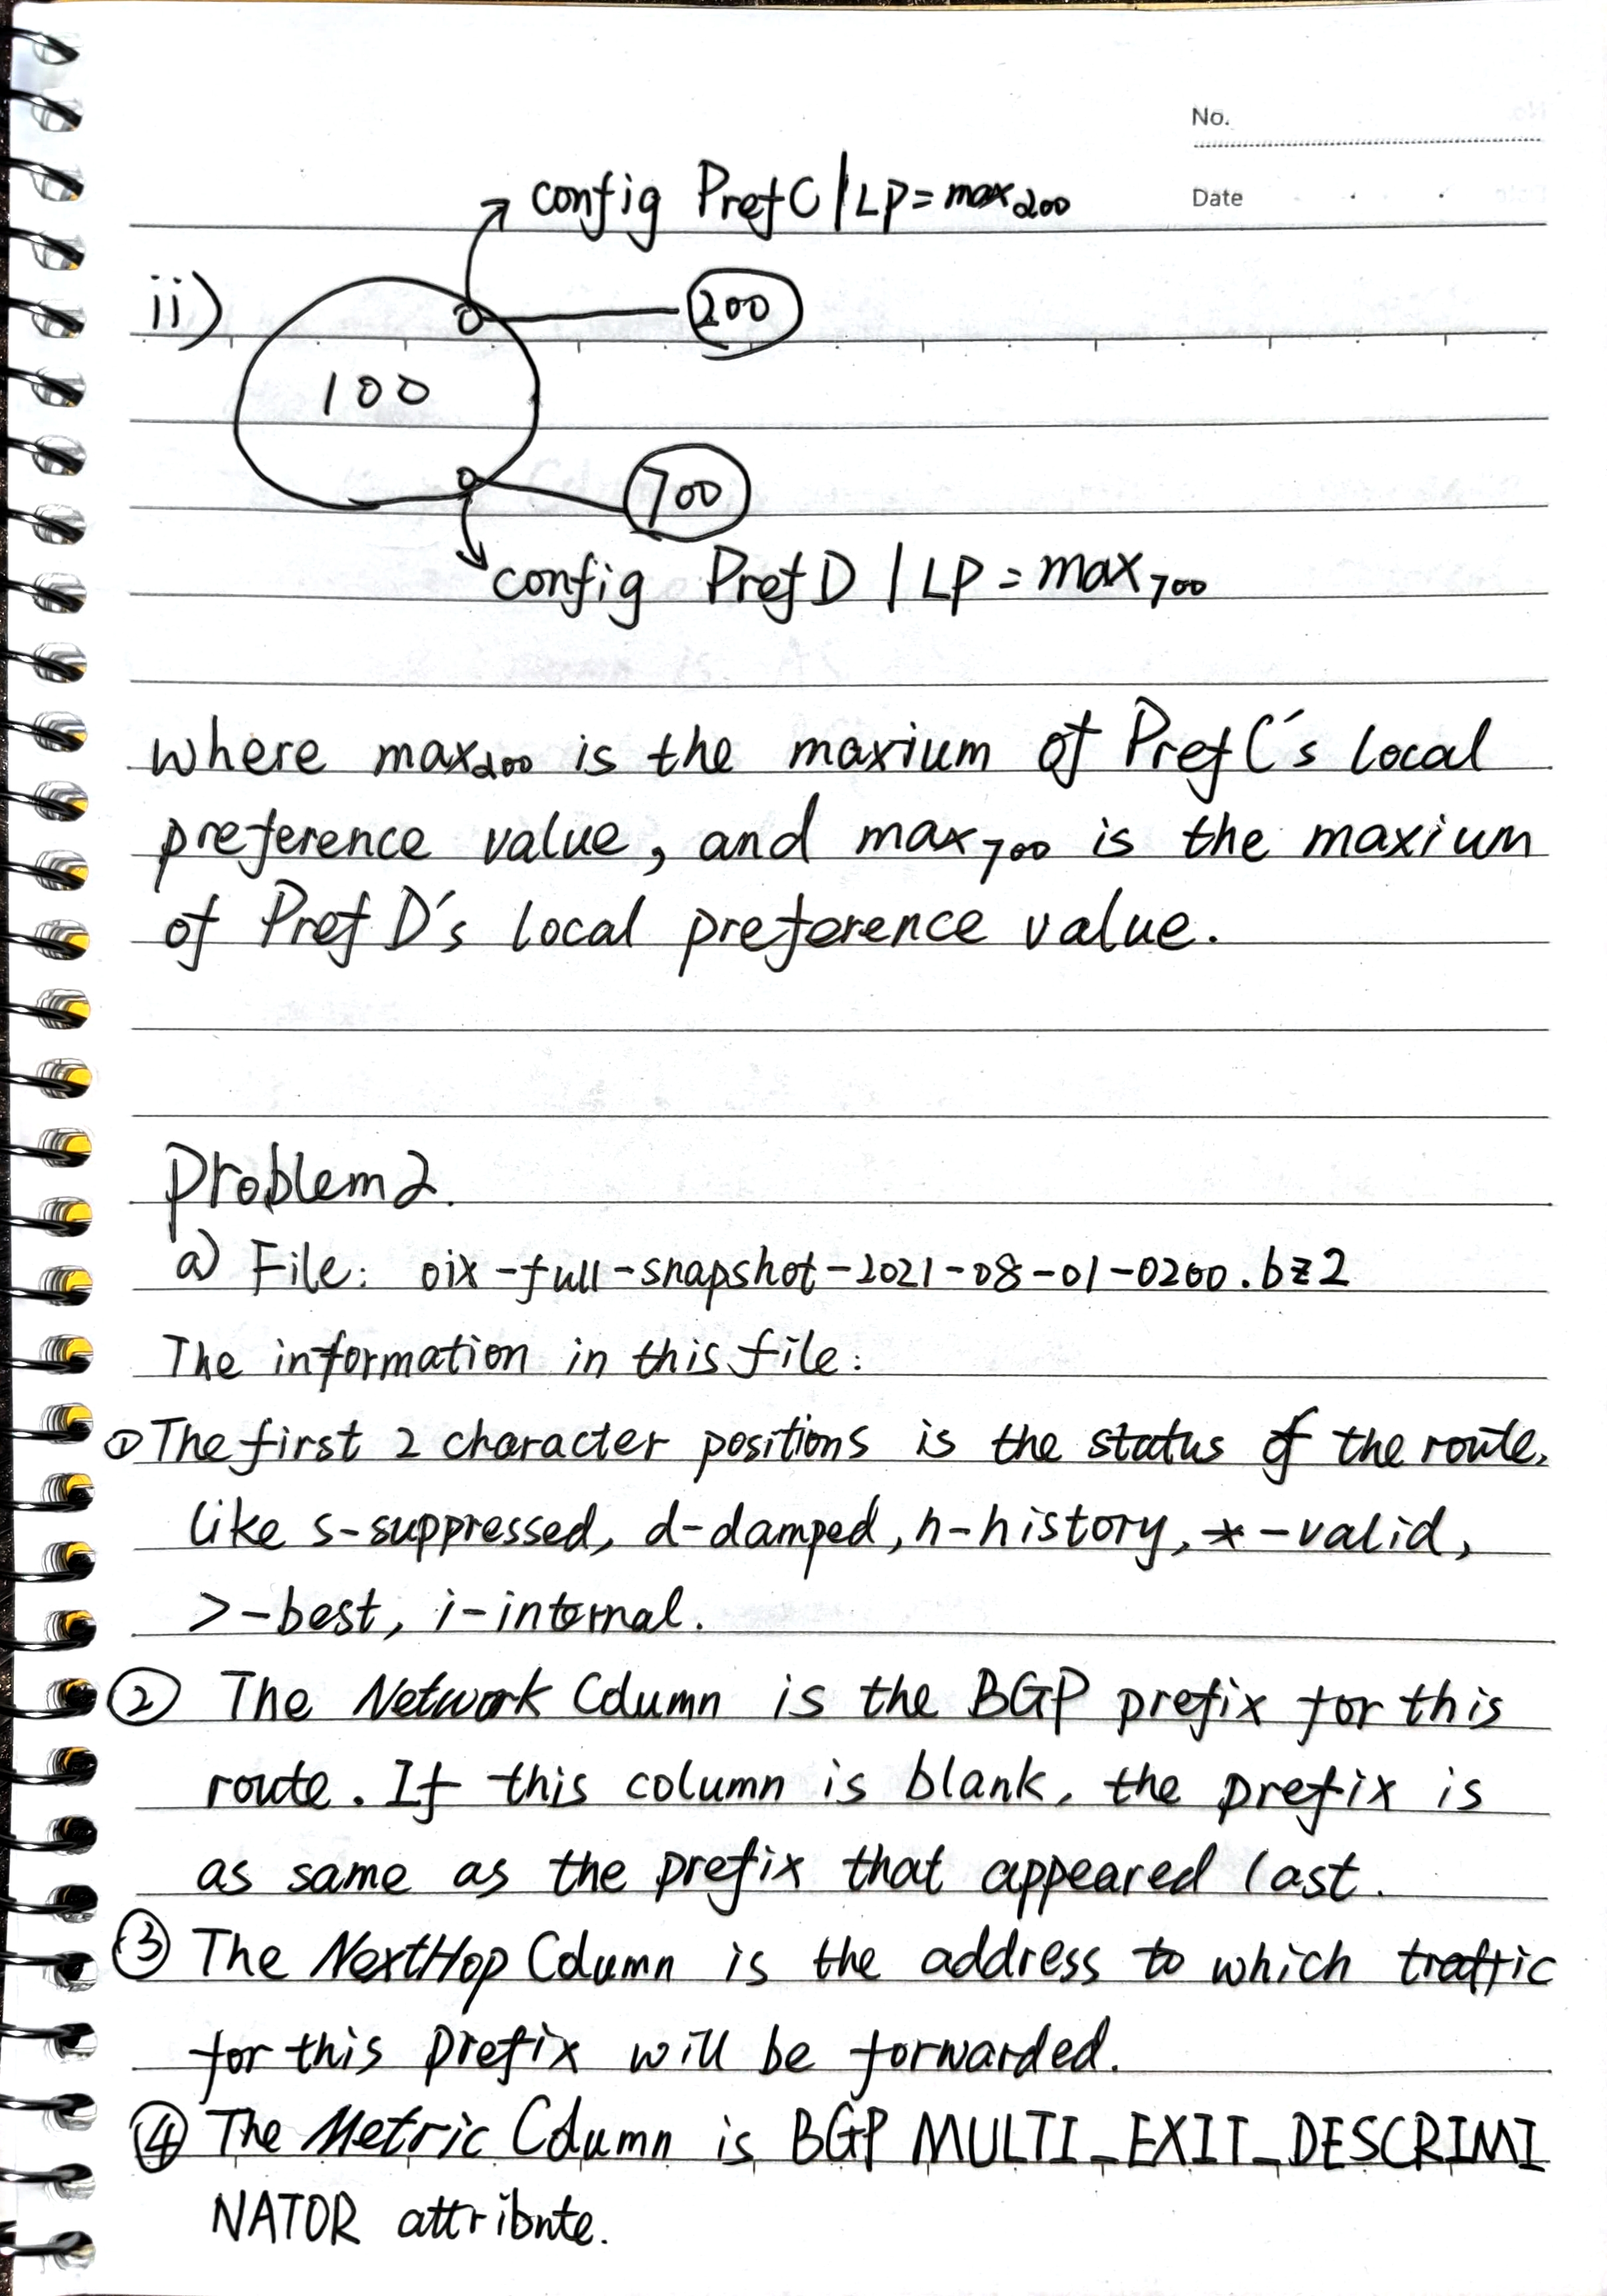 No.
Date
config PrefC | LP = max200
ii)
200
100
700
config PrefD | LP = max700
where max200 is the maxium of PrefC's local
preference value, and max700 is the maxium
of PrefD's local preference value.
Problem2.
a) File: oix-full-snapshot-2021-08-01-0200.bz2
The information in this file:
① The first 2 character positions is the status of the route,
like s-suppressed, d-damped, h-history, *-valid,
>-best, i-internal.
② The Network Column is the BGP prefix for this
route. If this column is blank, the prefix is
as same as the prefix that appeared last.
③ The NextHop Column is the address to which traffic
for this prefix will be forwarded.
④ The Metric Column is BGP MULTI_EXIT_DESCRIMI
NATOR attribute.